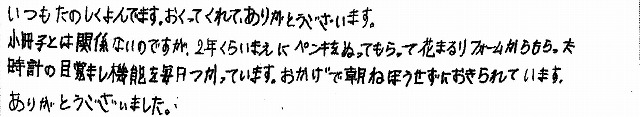 いつもたのしくよんでます。おくってくれて、ありがとうございます。
小冊子とは関係ないのですが、2年くらいまえにペンキをぬってもらって花まるリフォームからもらった
時計の目覚まし機能を毎日つかっています。おかげで朝ねぼうせずにおきられています。
ありがとうございました。